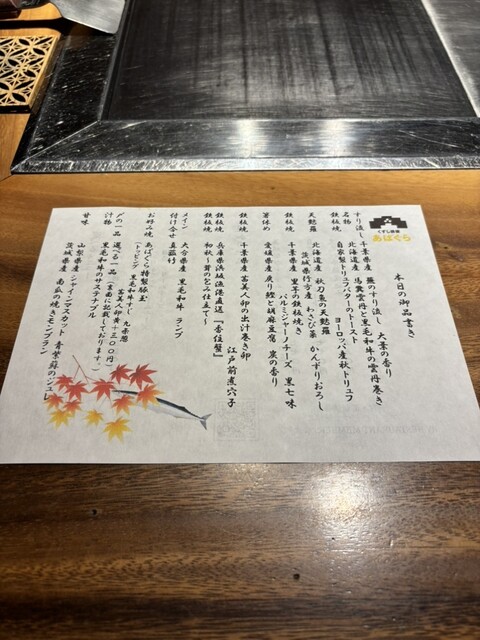 くずし鉄板
あばぐら
本日の御品書き
すり流し 千葉県産 蕪のすり流し 大葉の香り
名物 北海道産 馬糞雲丹と黒毛和牛の雲丹巻き
鉄板焼 自家製トリュフバターのトースト
ヨーロッパ産秋トリュフ
天麩羅 北海道産 秋刀魚の天麩羅
茨城県行方産 わさび菜 かんずりおろし
鉄板焼 千葉県産 里芋の鉄板焼き
パルミジャーノチーズ 黒七味
箸休め 愛媛県産 戻り鰹と胡麻豆腐 炭の香り
鉄板焼 千葉県産 萵美人卵の出汁巻き卵
江戸前煮穴子
鉄板焼 兵庫県浜坂漁港直送『香住蟹』
初秋〜茸の包み仕立て〜
メイン 大分県産 黒毛和牛 ランプ
付け合せ 真菰竹
お好み焼 あばぐら特製豚玉
(トッピング 黒毛和牛すじ 九条葱
萵美人卵黄+300円)
〆の一品 選べる一品(裏面に記載しております。)
汁物 黒毛和牛のサステナブル
甘味 山梨県産 シャインマスカット 青紫蘇のジュレ
茨城県産 南瓜の焼きモンブラン